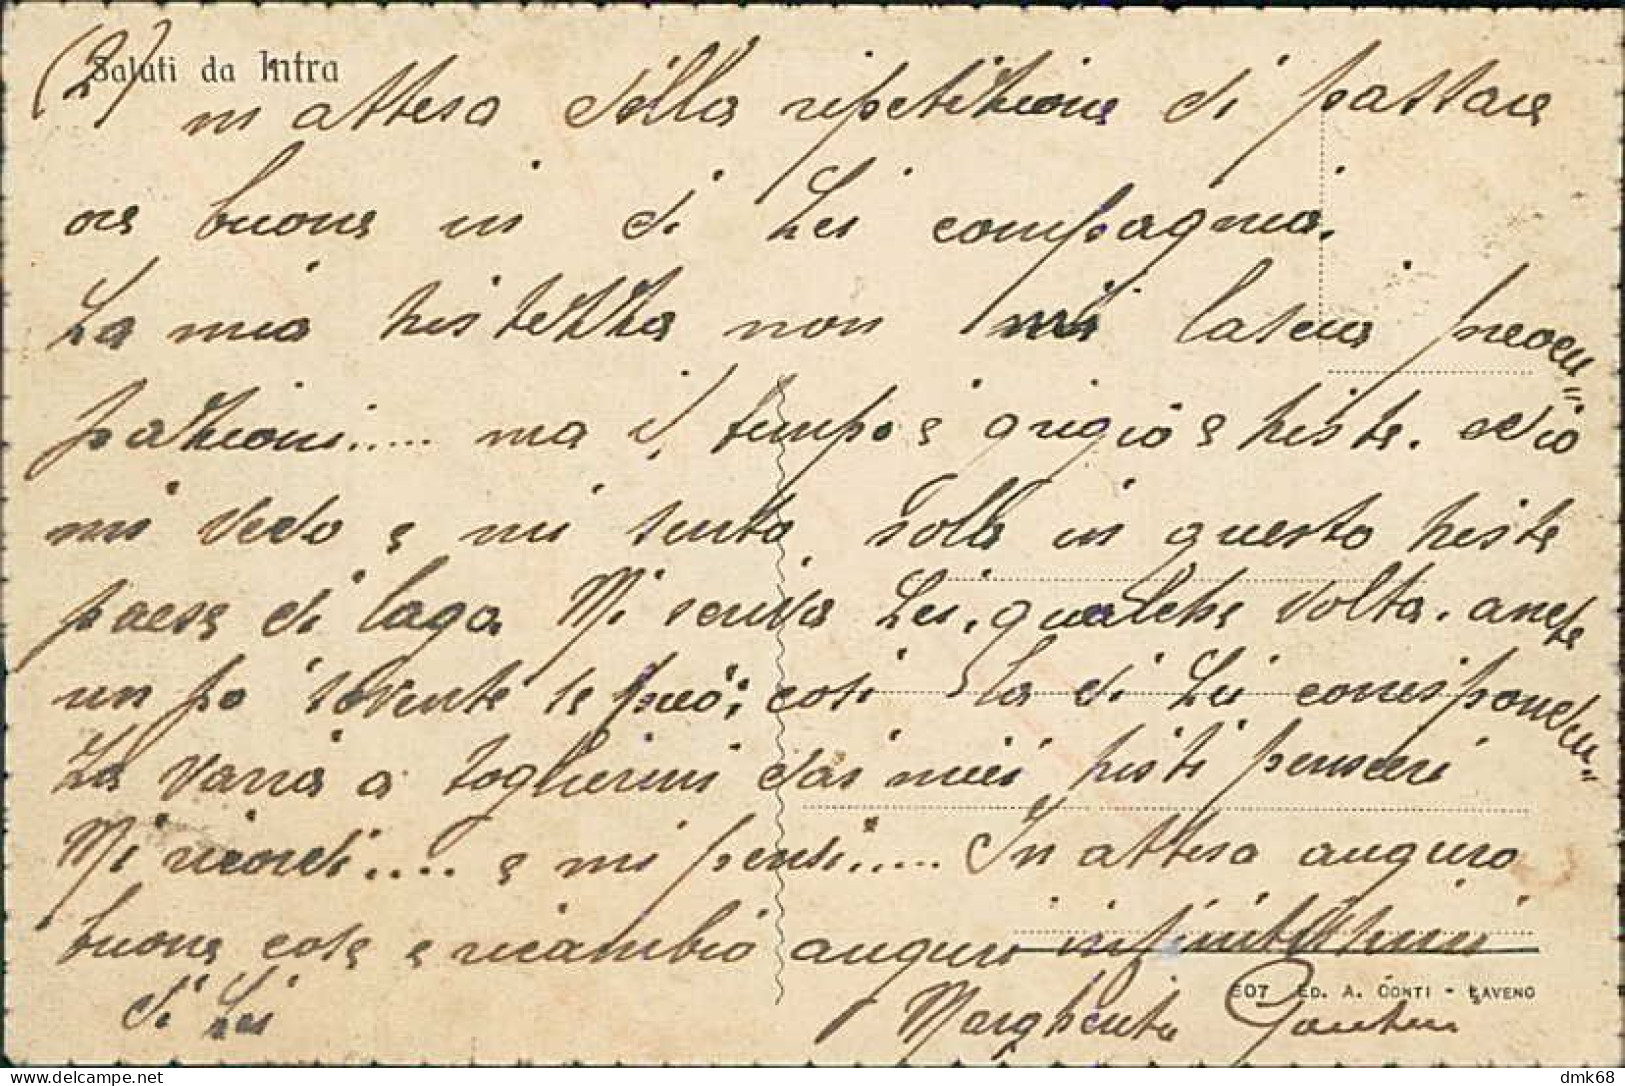 (2) Saluti da Intra
in attesa della ripetizione di passare
ore buone in di Lei compagnia.
La mia tristezza non mi lascia preoccu=
pazioni..... ma il tempo è grigio è triste. ed io
mi vedo e mi sento sola in questo triste
paese di lago. Mi scriva Lei, qualche volta. anche
un po' sovente se può; così la di Lei corrisponden=
za varrà a togliermi dai miei tristi pensieri
Mi ricordi..... e mi pensi..... In attesa auguro
buone cose e ricambio auguri infinitissimi
di Lei
Margherita
E07 ED. A. CONTI - LAVENO
dmk68